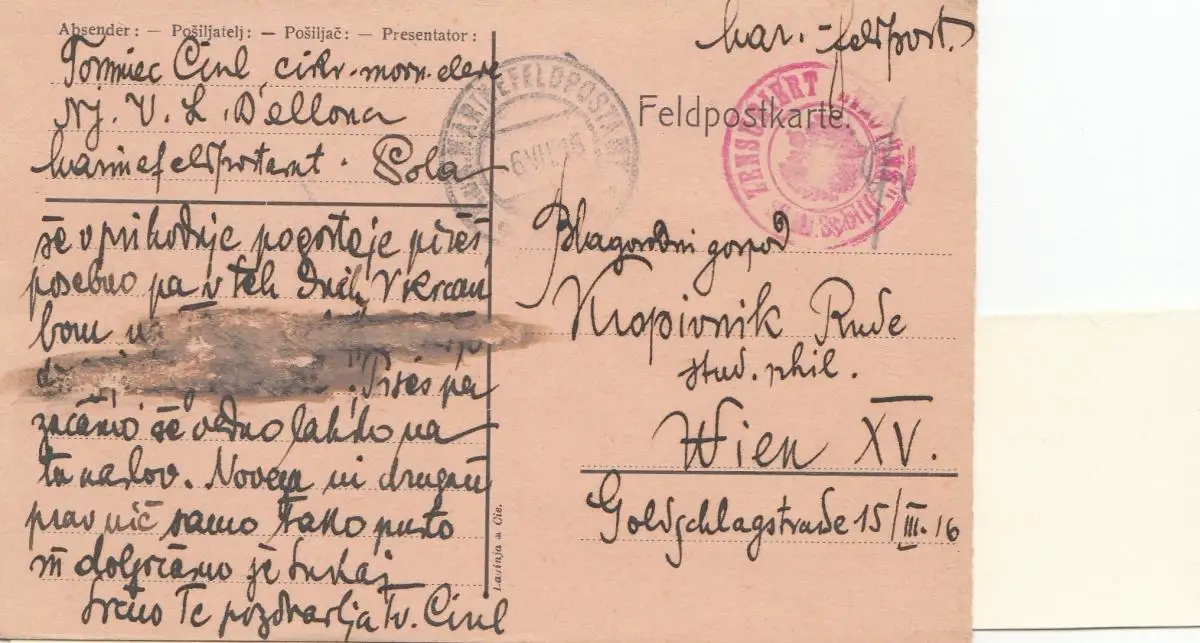 Absender: — Pošiljatelj: — Pošiljač: — Presentator:
Ciril
Nj. V. L. D'ellona
Marinefeldpostamt. Pola
še v prihodnje pogosteje pišeš
posebno pa v teh dneh. Vkrcan
bom
. Pišeš pa
začasno še vedno lahko na
ta naslov. Novega ni drugače
prav nič samo tako pusto
in dolgočasno je tukaj
Srčno Te pozdravlja Tv. Ciril
Mar.-feldpost.
Feldpostkarte.
MARINEFELDPOSTAMT
6 VII
ZENSURIERT
Blagorodni gospod
Kropivnik Rude
stud. phil.
Wien XV.
Goldschlagstrasse 15/III. 16
Laginja & Cie.